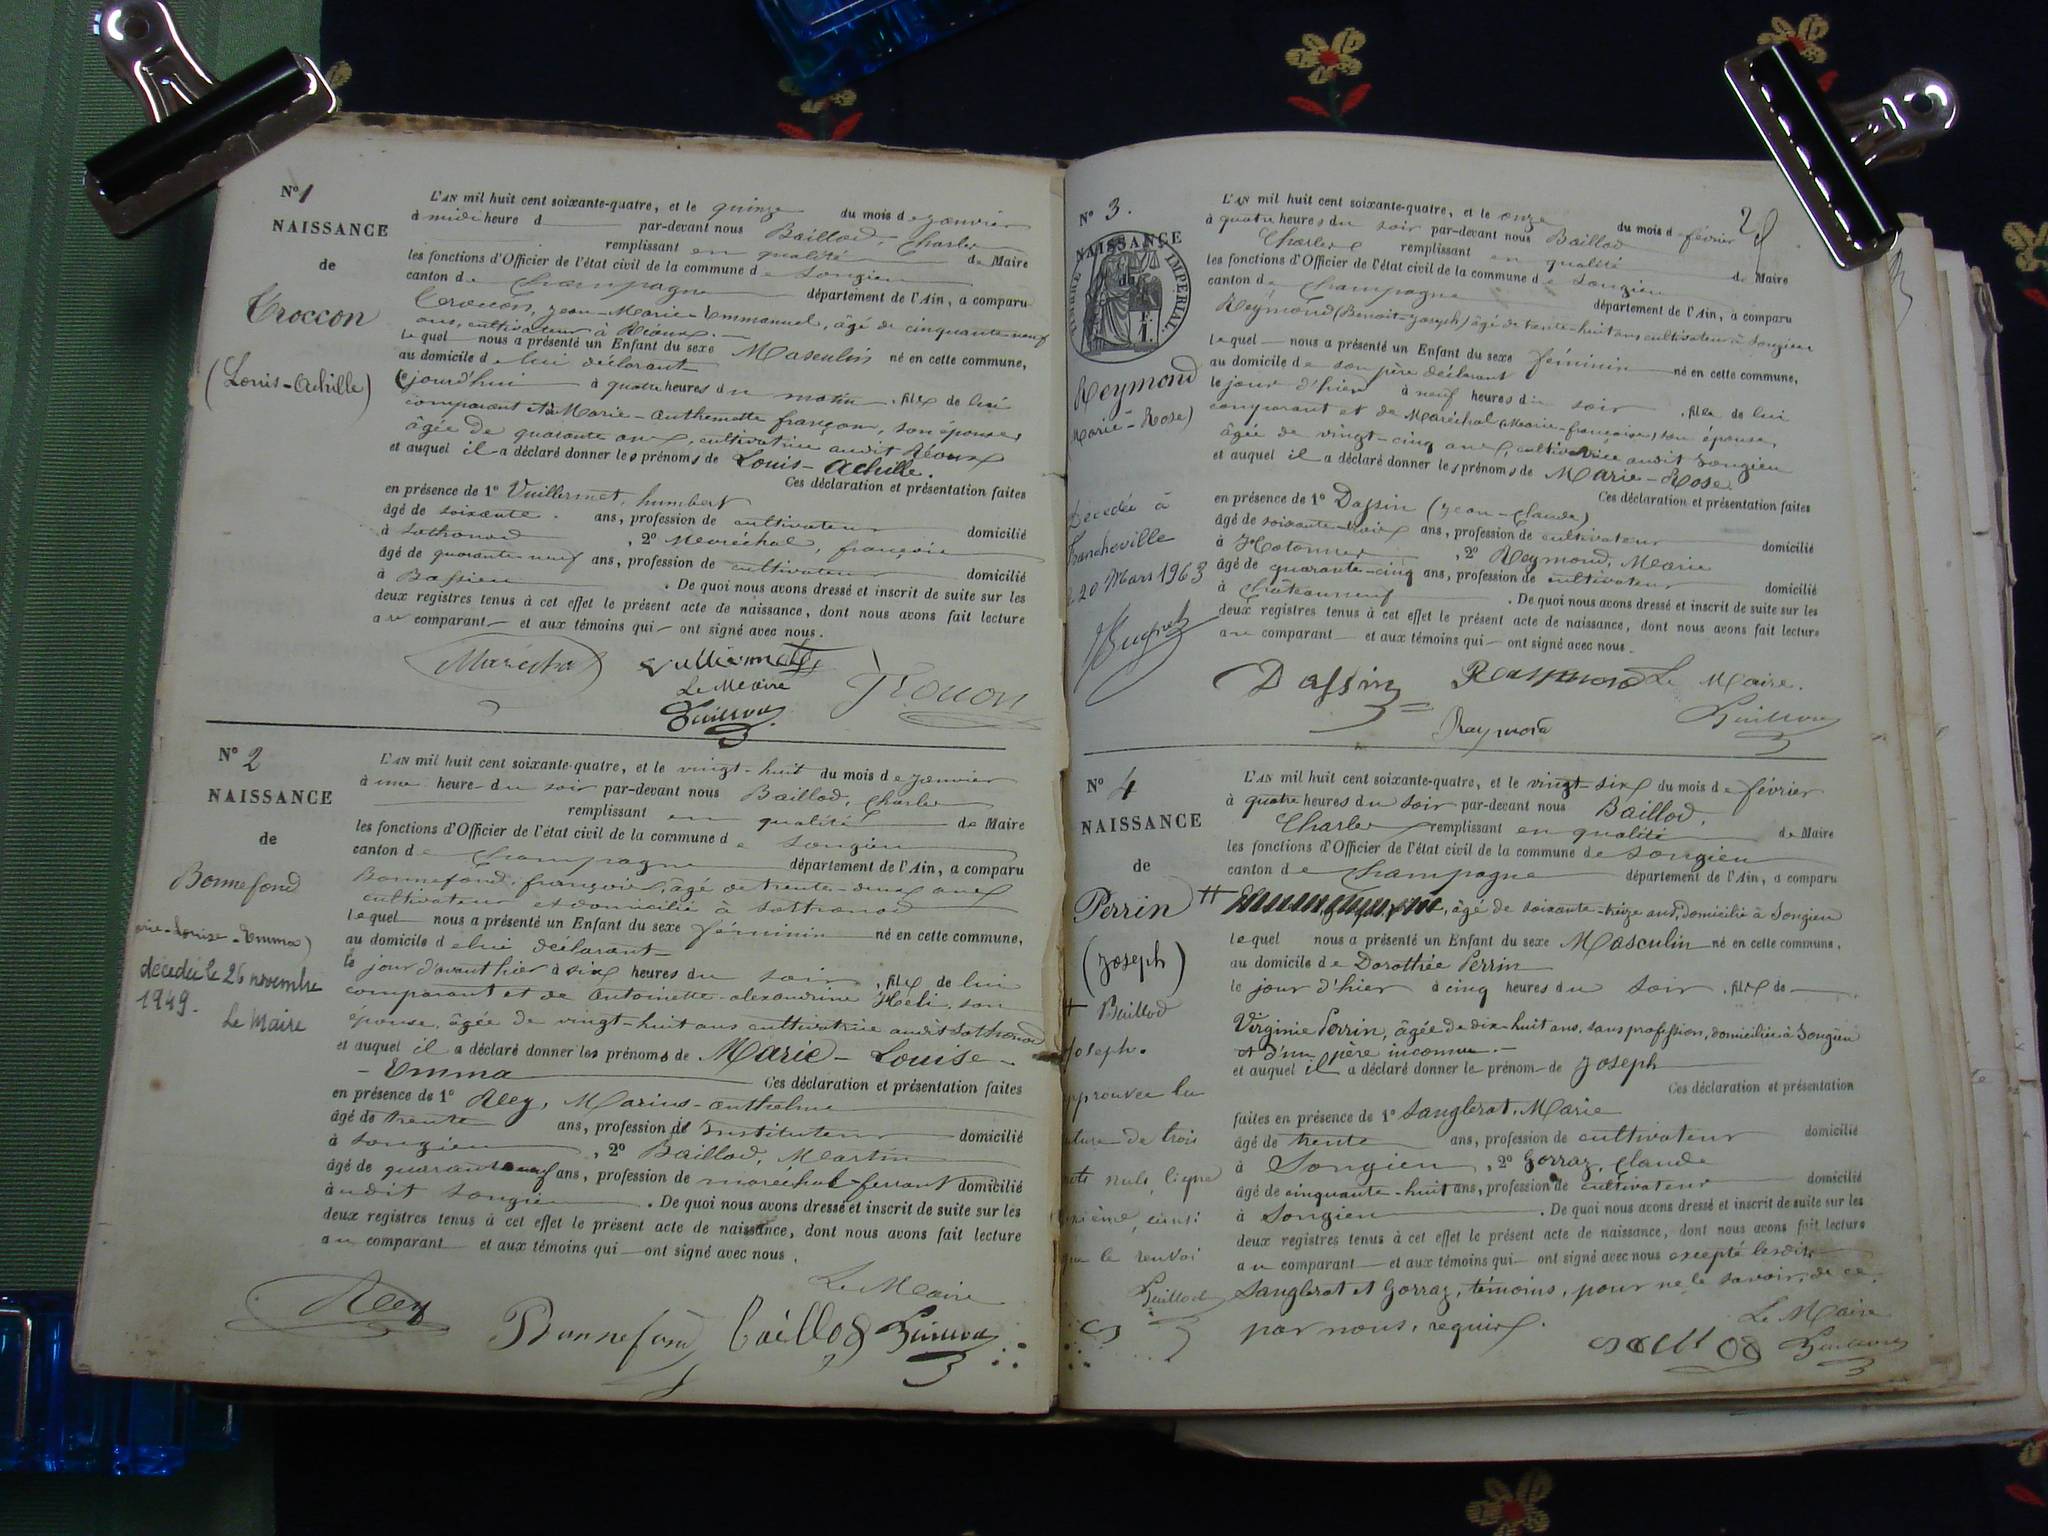 N° 1
NAISSANCE
de
Troccon
(Louis-Achille)
L'AN mil huit cent soixante-quatre, et le quinze du mois de janvier
à midi heure d par-devant nous Baillod, Charles
remplissant en qualité de Maire
les fonctions d'Officier de l'état civil de la commune de Songieu
canton de Champagne département de l'Ain, a comparu
Troccon, Jean-Marie-Emmanuel, âgé de cinquante-neuf
ans, cultivateur à
lequel nous a présenté un Enfant du sexe Masculin né en cette commune,
au domicile de lui déclarant
cejourd'hui à quatre heures du matin, fils de lui
comparant et de Marie-Anthelmette françon, son épouse,
âgée de quarante ans, cultivatrice audit
et auquel il a déclaré donner les prénoms de Louis-Achille.
Ces déclaration et présentation faites
en présence de 1° Vuillermet, humbert
âgé de soixante ans, profession de cultivateur domicilié
à Sothonod, 2° Maréchal, françois
âgé de quarante neuf ans, profession de cultivateur domicilié
à Bassieu. De quoi nous avons dressé et inscrit de suite sur les
deux registres tenus à cet effet le présent acte de naissance, dont nous avons fait lecture
au comparant et aux témoins qui ont signé avec nous.
Maréchal Vuillermet Trocon
Le Maire
Baillod
N° 2
NAISSANCE
de
Bonnefond
Louise-Emma)
décédée le 26 novembre
1949.
Le Maire
L'AN mil huit cent soixante-quatre, et le vingt-huit du mois de janvier
à une heure du soir par-devant nous Baillod, Charles
remplissant en qualité de Maire
les fonctions d'Officier de l'état civil de la commune de Songieu
canton de Champagne département de l'Ain, a comparu
Bonnefond, françois, âgé de trente-deux ans
cultivateur et domicilié à Sothonod
lequel nous a présenté un Enfant du sexe féminin né en cette commune,
au domicile de lui déclarant
le jour d'avant hier à six heures du soir, fille de lui
comparant et de Antoinette-alexandrine Héli, son
épouse, âgée de vingt-huit ans cultivatrice audit Sothonod
et auquel il a déclaré donner les prénoms de Marie-Louise-
-Emma Ces déclaration et présentation faites
en présence de 1° Rey, Marius-anthelme
âgé de trente ans, profession d'Instituteur domicilié
à Songieu, 2° Baillod, Martin
âgé de quarante neuf ans, profession de maréchal-ferrant domicilié
audit Songieu. De quoi nous avons dressé et inscrit de suite sur les
deux registres tenus à cet effet le présent acte de naissance, dont nous avons fait lecture
au comparant et aux témoins qui ont signé avec nous.
Le Maire
Rey Bonnefond baillod Baillod
N° 3.
NAISSANCE
de
TIMBRE IMPÉRIAL
Reymond
Marie-Rose)
Décédée à
Francheville
20 Mars 1963
L'AN mil huit cent soixante-quatre, et le onze du mois de février
à quatre heures du soir par-devant nous Baillod
Charles remplissant en qualité de Maire
les fonctions d'Officier de l'état civil de la commune de Songieu
canton de Champagne département de l'Ain, a comparu
Reymond (Benoit-Joseph) âgé de trente-huit ans cultivateur à Songieu
lequel nous a présenté un Enfant du sexe féminin né en cette commune,
au domicile de son père déclarant
le jour d'hier à neuf heures du soir, fille de lui
comparant et de Maréchal (Marie-françoise) son épouse,
âgée de vingt-cinq ans, cultivatrice audit Songieu
et auquel il a déclaré donner les prénoms de Marie-Rose
Ces déclaration et présentation faites
en présence de 1° Dassin (Jean-Claude)
âgé de soixante-trois ans, profession de cultivateur domicilié
à Hotonnes, 2° Reymond, Marie
âgé de quarante-cinq ans, profession de cultivateur domicilié
à Châteauneuf. De quoi nous avons dressé et inscrit de suite sur les
deux registres tenus à cet effet le présent acte de naissance, dont nous avons fait lecture
au comparant et aux témoins qui ont signé avec nous.
Dassin Reymond Le Maire.
Raymond Baillod
N° 4
NAISSANCE
de
Perrin
(Joseph)
+ Baillod
Joseph.
approuvée la
rature de trois
mots nuls, ligne
ainsi
que le renvoi
Baillod
L'AN mil huit cent soixante-quatre, et le vingt-six du mois de février
à quatre heures du soir par-devant nous Baillod,
Charles remplissant en qualité de Maire
les fonctions d'Officier de l'état civil de la commune de Songieu
canton de Champagne département de l'Ain, a comparu
, âgé de soixante-treize ans, domicilié à Songieu
lequel nous a présenté un Enfant du sexe Masculin né en cette commune,
au domicile de Dorothée Perrin
le jour d'hier à cinq heures du soir, fils de
Virginie Perrin, âgée de dix-huit ans, sans profession, domiciliée à Songieu
et d'un père inconnu.
et auquel il a déclaré donner le prénom de Joseph
Ces déclaration et présentation
faites en présence de 1° Sanglerat, Marie
âgé de trente ans, profession de cultivateur domicilié
à Songieu, 2° Gorraz, Claude
âgé de cinquante-huit ans, profession de cultivateur domicilié
à Songieu. De quoi nous avons dressé et inscrit de suite sur les
deux registres tenus à cet effet le présent acte de naissance, dont nous avons fait lecture
au comparant et aux témoins qui ont signé avec nous excepté lesdits
Sanglerat et Gorraz, témoins, pour ne le savoir, de ce
par nous, requis.
Le Maire
Baillod